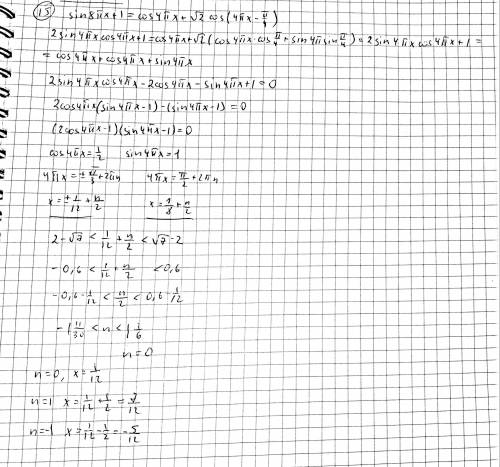 15) sin8πx+1 = cos4πx + √2 cos(4πx - π/4)
2sin4πx cos4πx+1 = cos4πx+√2(cos4πx·cos π/4 + sin4πx sin π/4) = 2sin4πx cos4πx+1 =
= cos4πx+cos4πx+sin4πx
2sin4πx cos4πx - 2cos4πx - sin4πx+1=0
2cos4πx(sin4πx-1)-(sin4πx-1)=0
(2cos4πx-1)(sin4πx-1)=0
cos4πx=1/2 sin4πx=1
4πx=±π/3+2πn 4πx=π/2+2πn
x=±1/12+n/2 x=1/8+n/2
2-√7 < 1/12+n/2 < √7-2
-0,6 < 1/12+n/2 < 0,6
-0,6-1/12 < n/2 < 0,6-1/12
-1 11/30 < n < 1 1/6
n=0
n=0, x=1/12
n=1 x=1/12+1/2=7/12
n=-1 x=1/12-1/2=-5/12